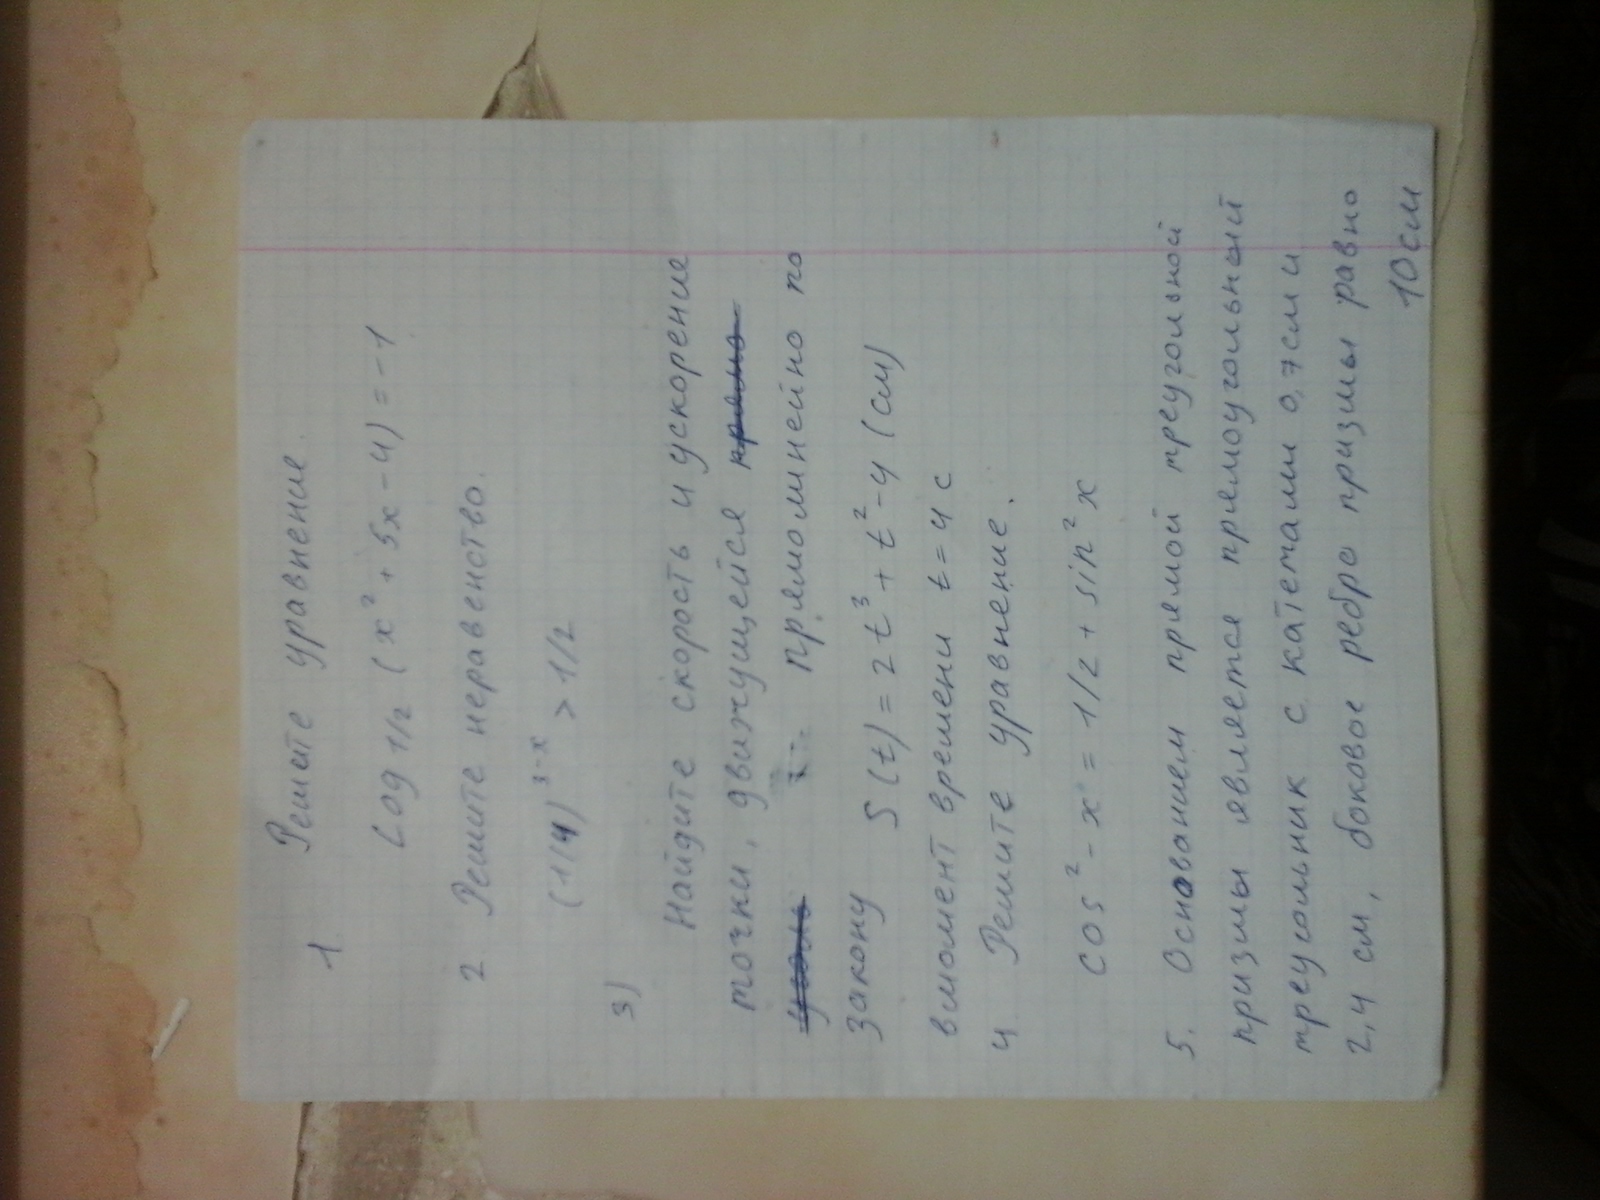 1 Решите уравнение.
Log 1/2 (x² + 5x - 4) = -1
2 Решите неравенство.
(1/4)³⁻ˣ > 1/2
3)
Найдите скорость и ускорение
точки, движущейся
прямолинейно по
закону S(t) = 2t³ + t² - 4 (см)
вмомент времени t = 4 с
4 Решите уравнение.
cos² - x = 1/2 + sin² x
5. Основанием прямой треугольной
призмы является прямоугольный
треугольник с катетами 0,7см и
2,4 см, боковое ребро призмы равно
10см